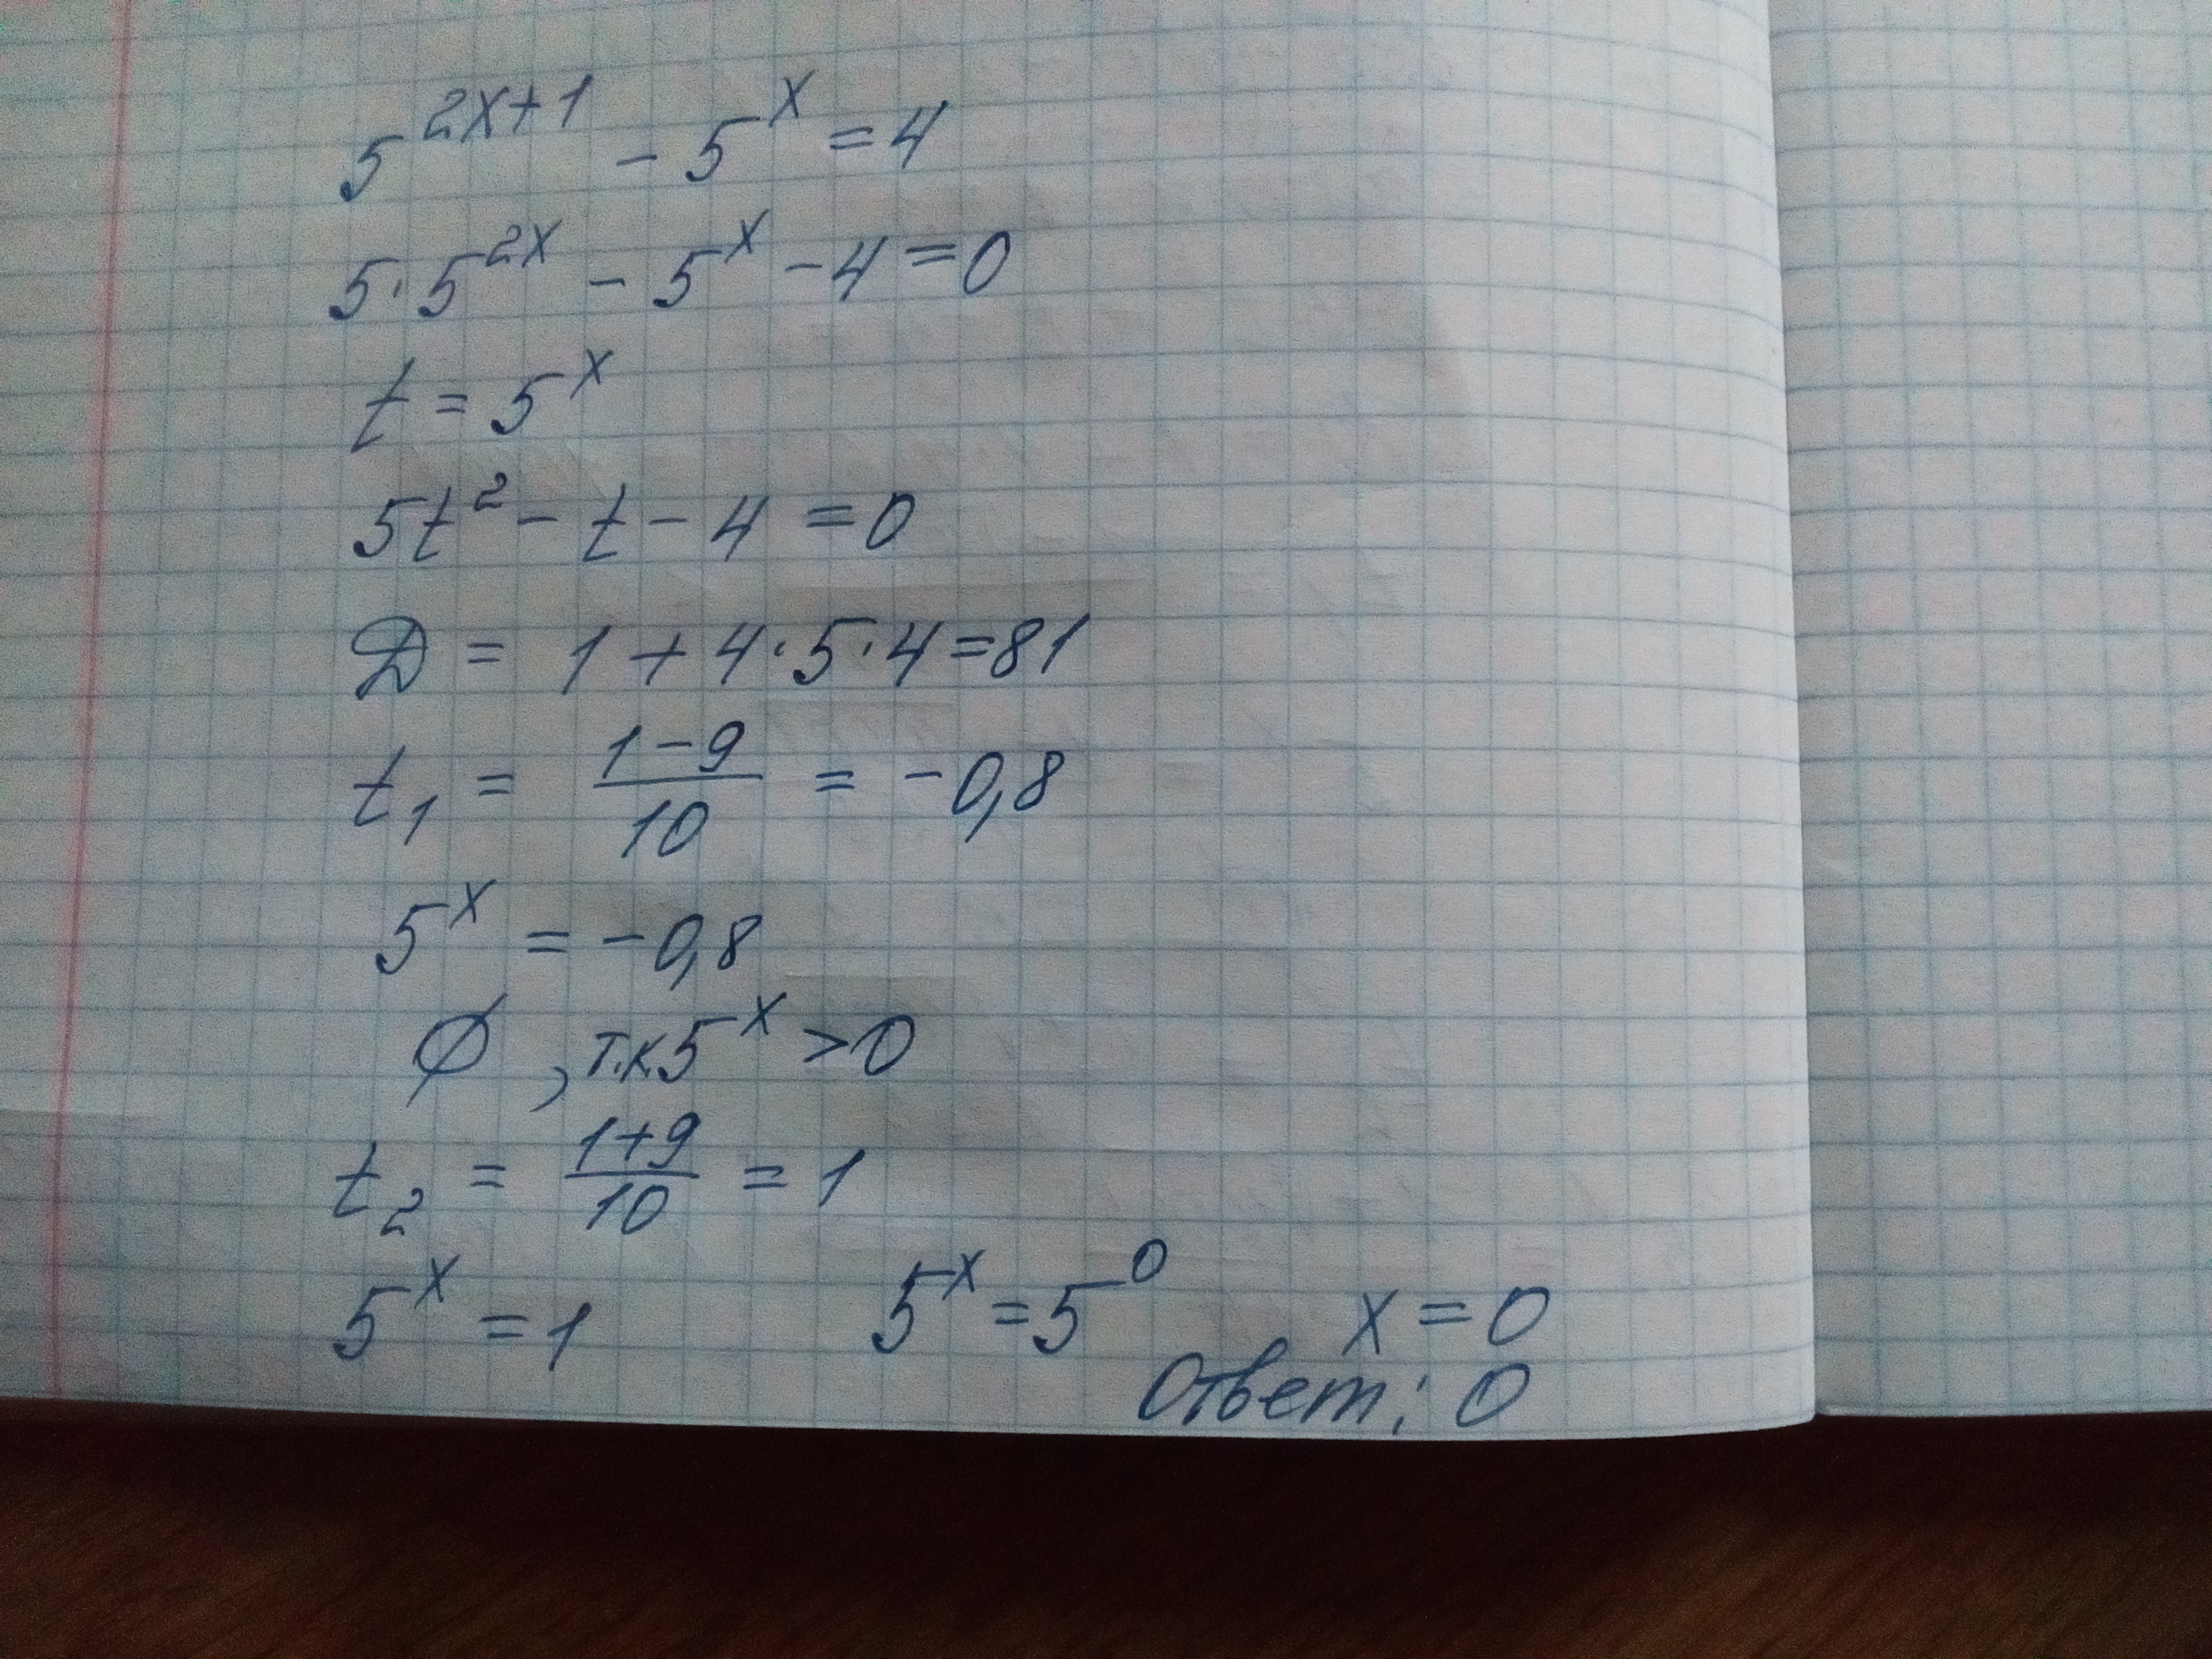 5^{2x+1} - 5^x = 4
5·5^{2x} - 5^x - 4 = 0
t = 5^x
5t² - t - 4 = 0
D = 1 + 4·5·4 = 81
t₁ = \frac{1-9}{10} = -0,8
5^x = -0,8
∅, т.к. 5^x > 0
t₂ = \frac{1+9}{10} = 1
5^x = 1 5^x = 5^0 x = 0
Ответ: 0